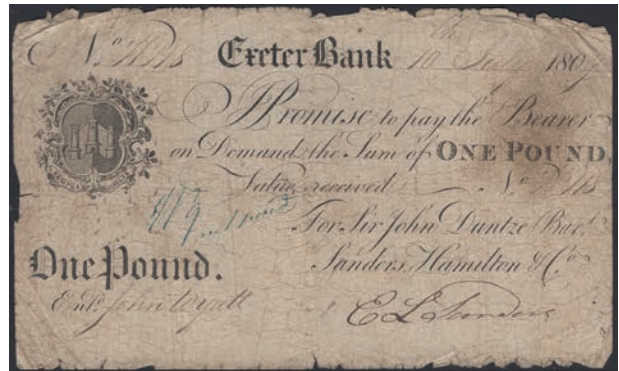 No Exeter Bank 10th July 180
I Promise to pay the Bearer
on Demand the Sum of ONE POUND
Value received No
For Sir John Duntze Bart
Sanders, Hamilton & Co
One Pound.
Entd John Wyatt
E L Sanders